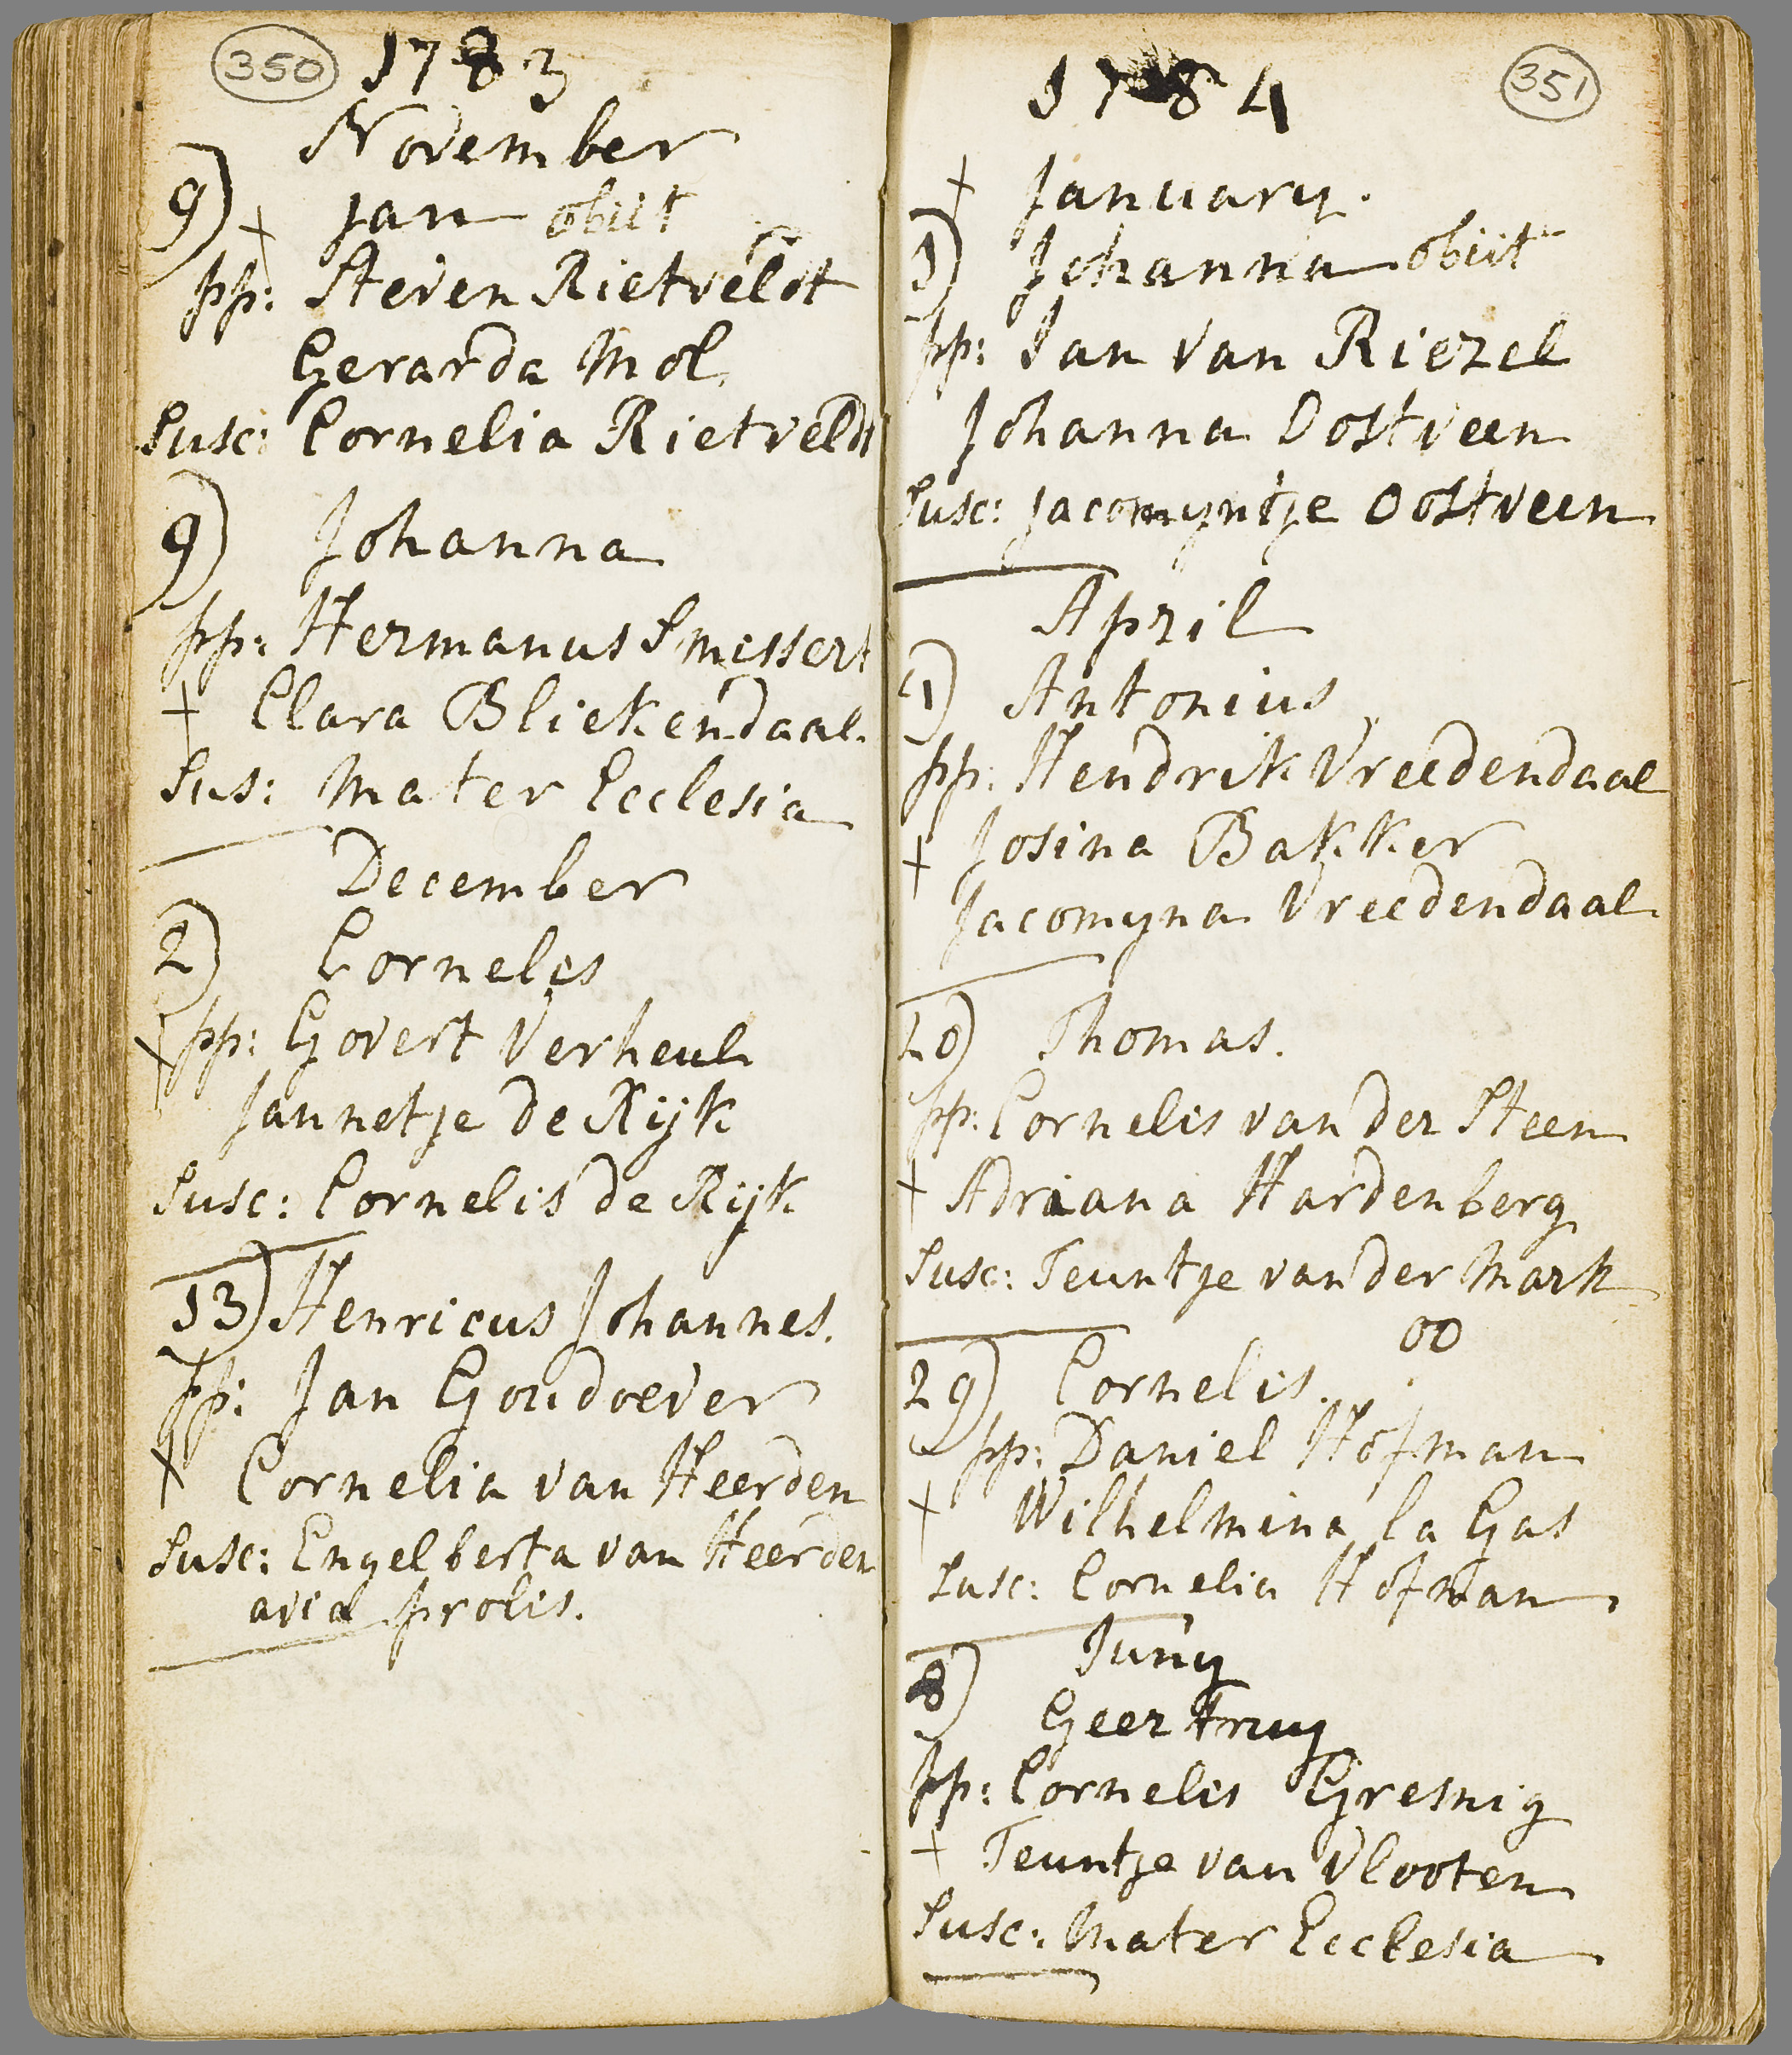 350 1783
November
9) + Jan obiit
pp: Steven Rietveldt
Gerarda Mol
Susc: Cornelia Rietveldt
9) Johanna
pp: Hermanus Smessert
+ Clara Bliekendaal
Sus: Mater Ecclesia
December
2) Cornelis
+ pp: Govert Verheul
Jannetje de Rijk
Susc: Cornelis de Rijk
13) Henricus Johannes.
pp: Jan Goudoever
+ Cornelia van Heerden
Susc: Engelberta van Heerden
avia prolis.
1784 351
+ January.
1) Johanna obiit
pp: Jan van Riezel
Johanna Oostveen
Susc: Jacomyntje Oostveen
April
1) Antonius
pp: Hendrik Vreedendaal
+ Josina Bakker
Jacomyna Vreedendaal
20) Thomas.
pp: Cornelis van der Steen
+ Adriana Hardenberg
Susc: Teuntje van der Mark
00
29) Cornelis.
pp: Daniel Hofman
+ Wilhelmina la Gas
Susc: Cornelia Hofman
Juny
8)
Geertruy
pp: Cornelis Gresnig
+ Teuntje van Vlooten
Susc: Mater Ecclesia